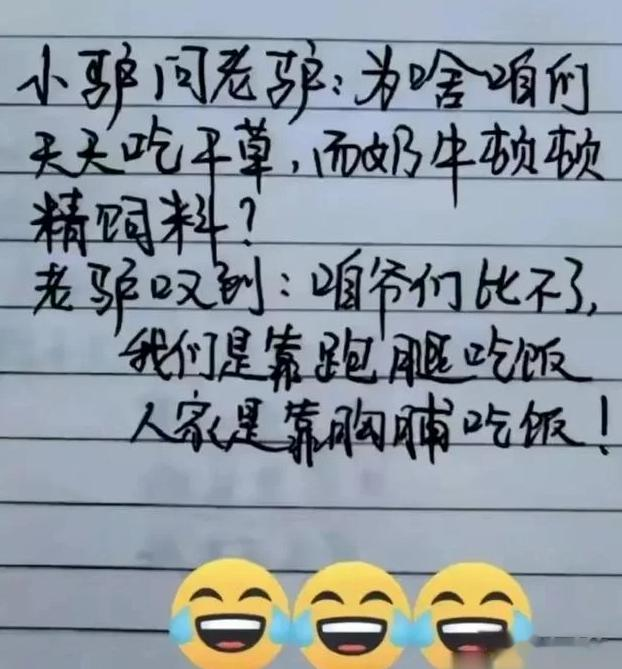 小驴问老驴:为啥咱们
天天吃干草,而奶牛顿顿
精饲料?
老驴叹到:咱爷们比不了,
我们是靠跑腿吃饭
人家是靠胸脯吃饭!